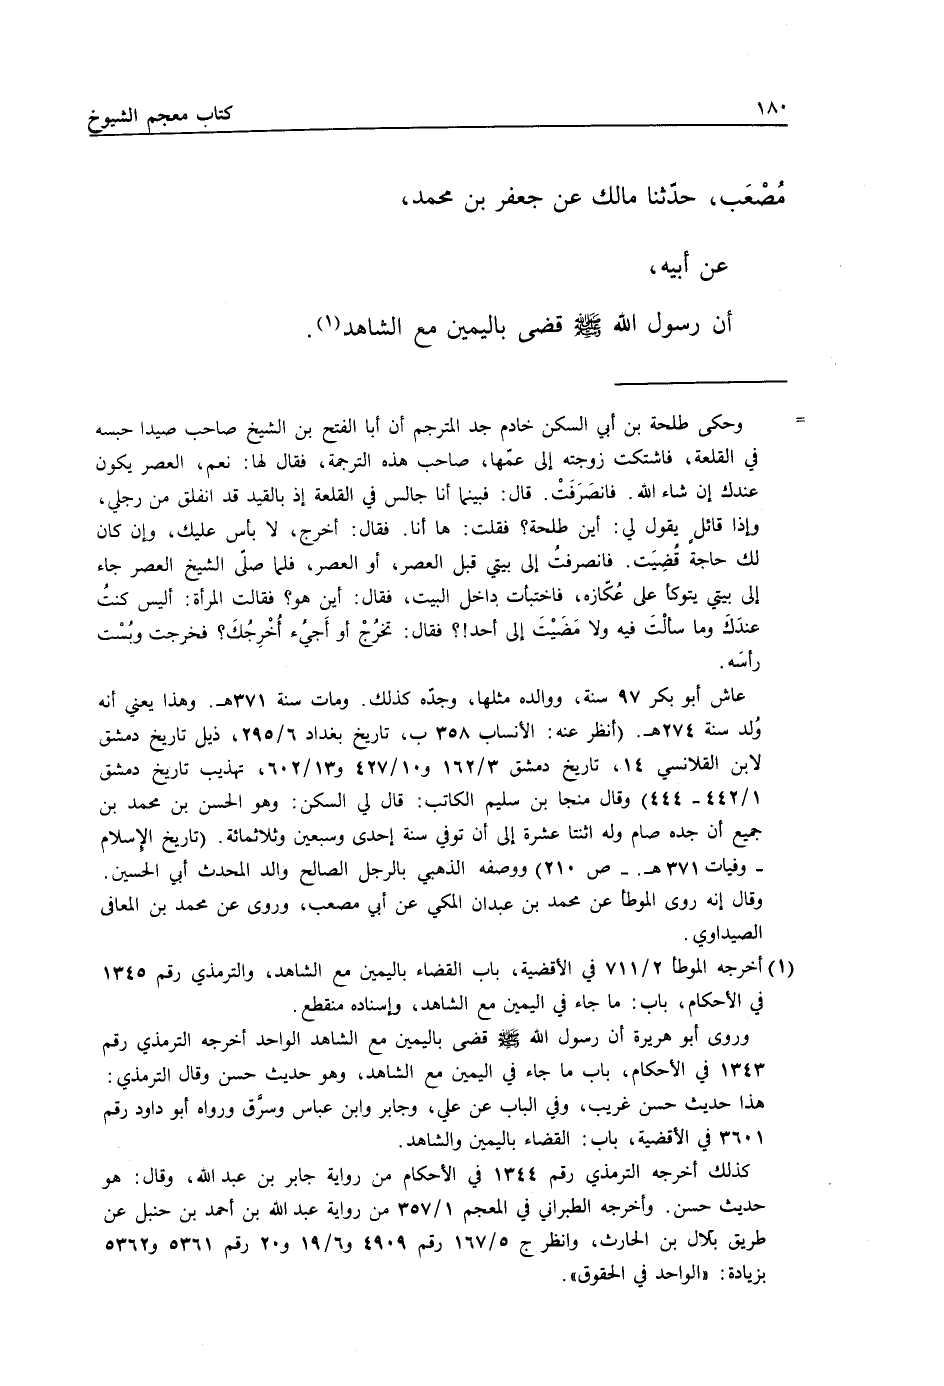 ١٨٠ كتاب معجم الشيوخ
مُصْعَب، حدّثنا مالك عن جعفر بن محمد،
عن أبيه،
أن رسول الله ﷺ قضى باليمين مع الشاهد(١).
= وحكى طلحة بن أبي السكن خادم جد المترجم أن أبا الفتح بن الشيخ صاحب صيدا حبسه
في القلعة، فاشتكت زوجته إلى عمّها، صاحب هذه الترجمة، فقال لها: نعم، العصر يكون
عندك إن شاء الله. فانصَرَفَتْ. قال: فبينما أنا جالس في القلعة إذ بالقيد قد انفلق من رجلي،
وإذا قائلٍ يقول لي: أين طلحة؟ فقلت: ها أنا. فقال: أخرج، لا بأس عليك، وإن كان
لك حاجة قُضِيَت. فانصرفتُ إلى بيتي قبل العصر، أو العصر، فلما صلّى الشيخ العصر جاء
إلى بيتي يتوكأ على عُكّازه، فاختبأت داخل البيت، فقال: أين هو؟ فقالت المرأة: أليس كنتُ
عندَكَ وما سألْتَ فيه ولا مَضَيْتَ إلى أحد!؟ فقال: تخرُجْ أو أَجيُء أُخْرِجُكَ؟ فخرجت وبُسْت
رأسَه.
عاش أبو بكر ٩٧ سنة، ووالده مثلها، وجدّه كذلك. ومات سنة ٣٧١هـ. وهذا يعني أنه
وُلد سنة ٢٧٤هـ. (أنظر عنه: الأنساب ٣٥٨ ب، تاريخ بغداد ٢٩٥/٦، ذيل تاريخ دمشق
لابن القلانسي ١٤، تاريخ دمشق ١٦٢/٣ و٤٢٧/١٠ و٦٠٢/١٣، تهذيب تاريخ دمشق
٤٤٢/١ ـ ٤٤٤) وقال منجا بن سليم الكاتب: قال لي السكن: وهو الحسن بن محمد بن
جميع أن جده صام وله اثنتا عشرة إلى أن توفي سنة إحدى وسبعين وثلاثمائة. (تاريخ الإسلام
ـ وفيات ٣٧١ هـ. ـ ص ٢١٠) ووصفه الذهبي بالرجل الصالح والد المحدث أبي الحسين.
وقال إنه روى الموطأ عن محمد بن عبدان المكي عن أبي مصعب، وروى عن محمد بن المعافى
الصيداوي.
(١) أخرجه الموطأ ٧١١/٢ في الأقضية، باب القضاء باليمين مع الشاهد، والترمذي رقم ١٣٤٥
في الأحكام، باب: ما جاء في اليمين مع الشاهد، وإسناده منقطع.
وروى أبو هريرة أن رسول الله ﷺ قضى باليمين مع الشاهد الواحد أخرجه الترمذي رقم
١٣٤٣ في الأحكام، باب ما جاء في اليمين مع الشاهد، وهو حديث حسن وقال الترمذي:
هذا حديث حسن غريب، وفي الباب عن علي، وجابر وابن عباس وسرَّق ورواه أبو داود رقم
٣٦٠١ في الأقضية، باب: القضاء باليمين والشاهد.
كذلك أخرجه الترمذي رقم ١٣٤٤ في الأحكام من رواية جابر بن عبد الله، وقال: هو
حديث حسن. وأخرجه الطبراني في المعجم ٣٥٧/١ من رواية عبد الله بن أحمد بن حنبل عن
طريق بلال بن الحارث، وانظر ج ١٦٧/٥ رقم ٤٩٠٩ و١٩/٦ و٢٠ رقم ٥٣٦١ و٥٣٦٢
بزيادة: «الواحد في الحقوق».